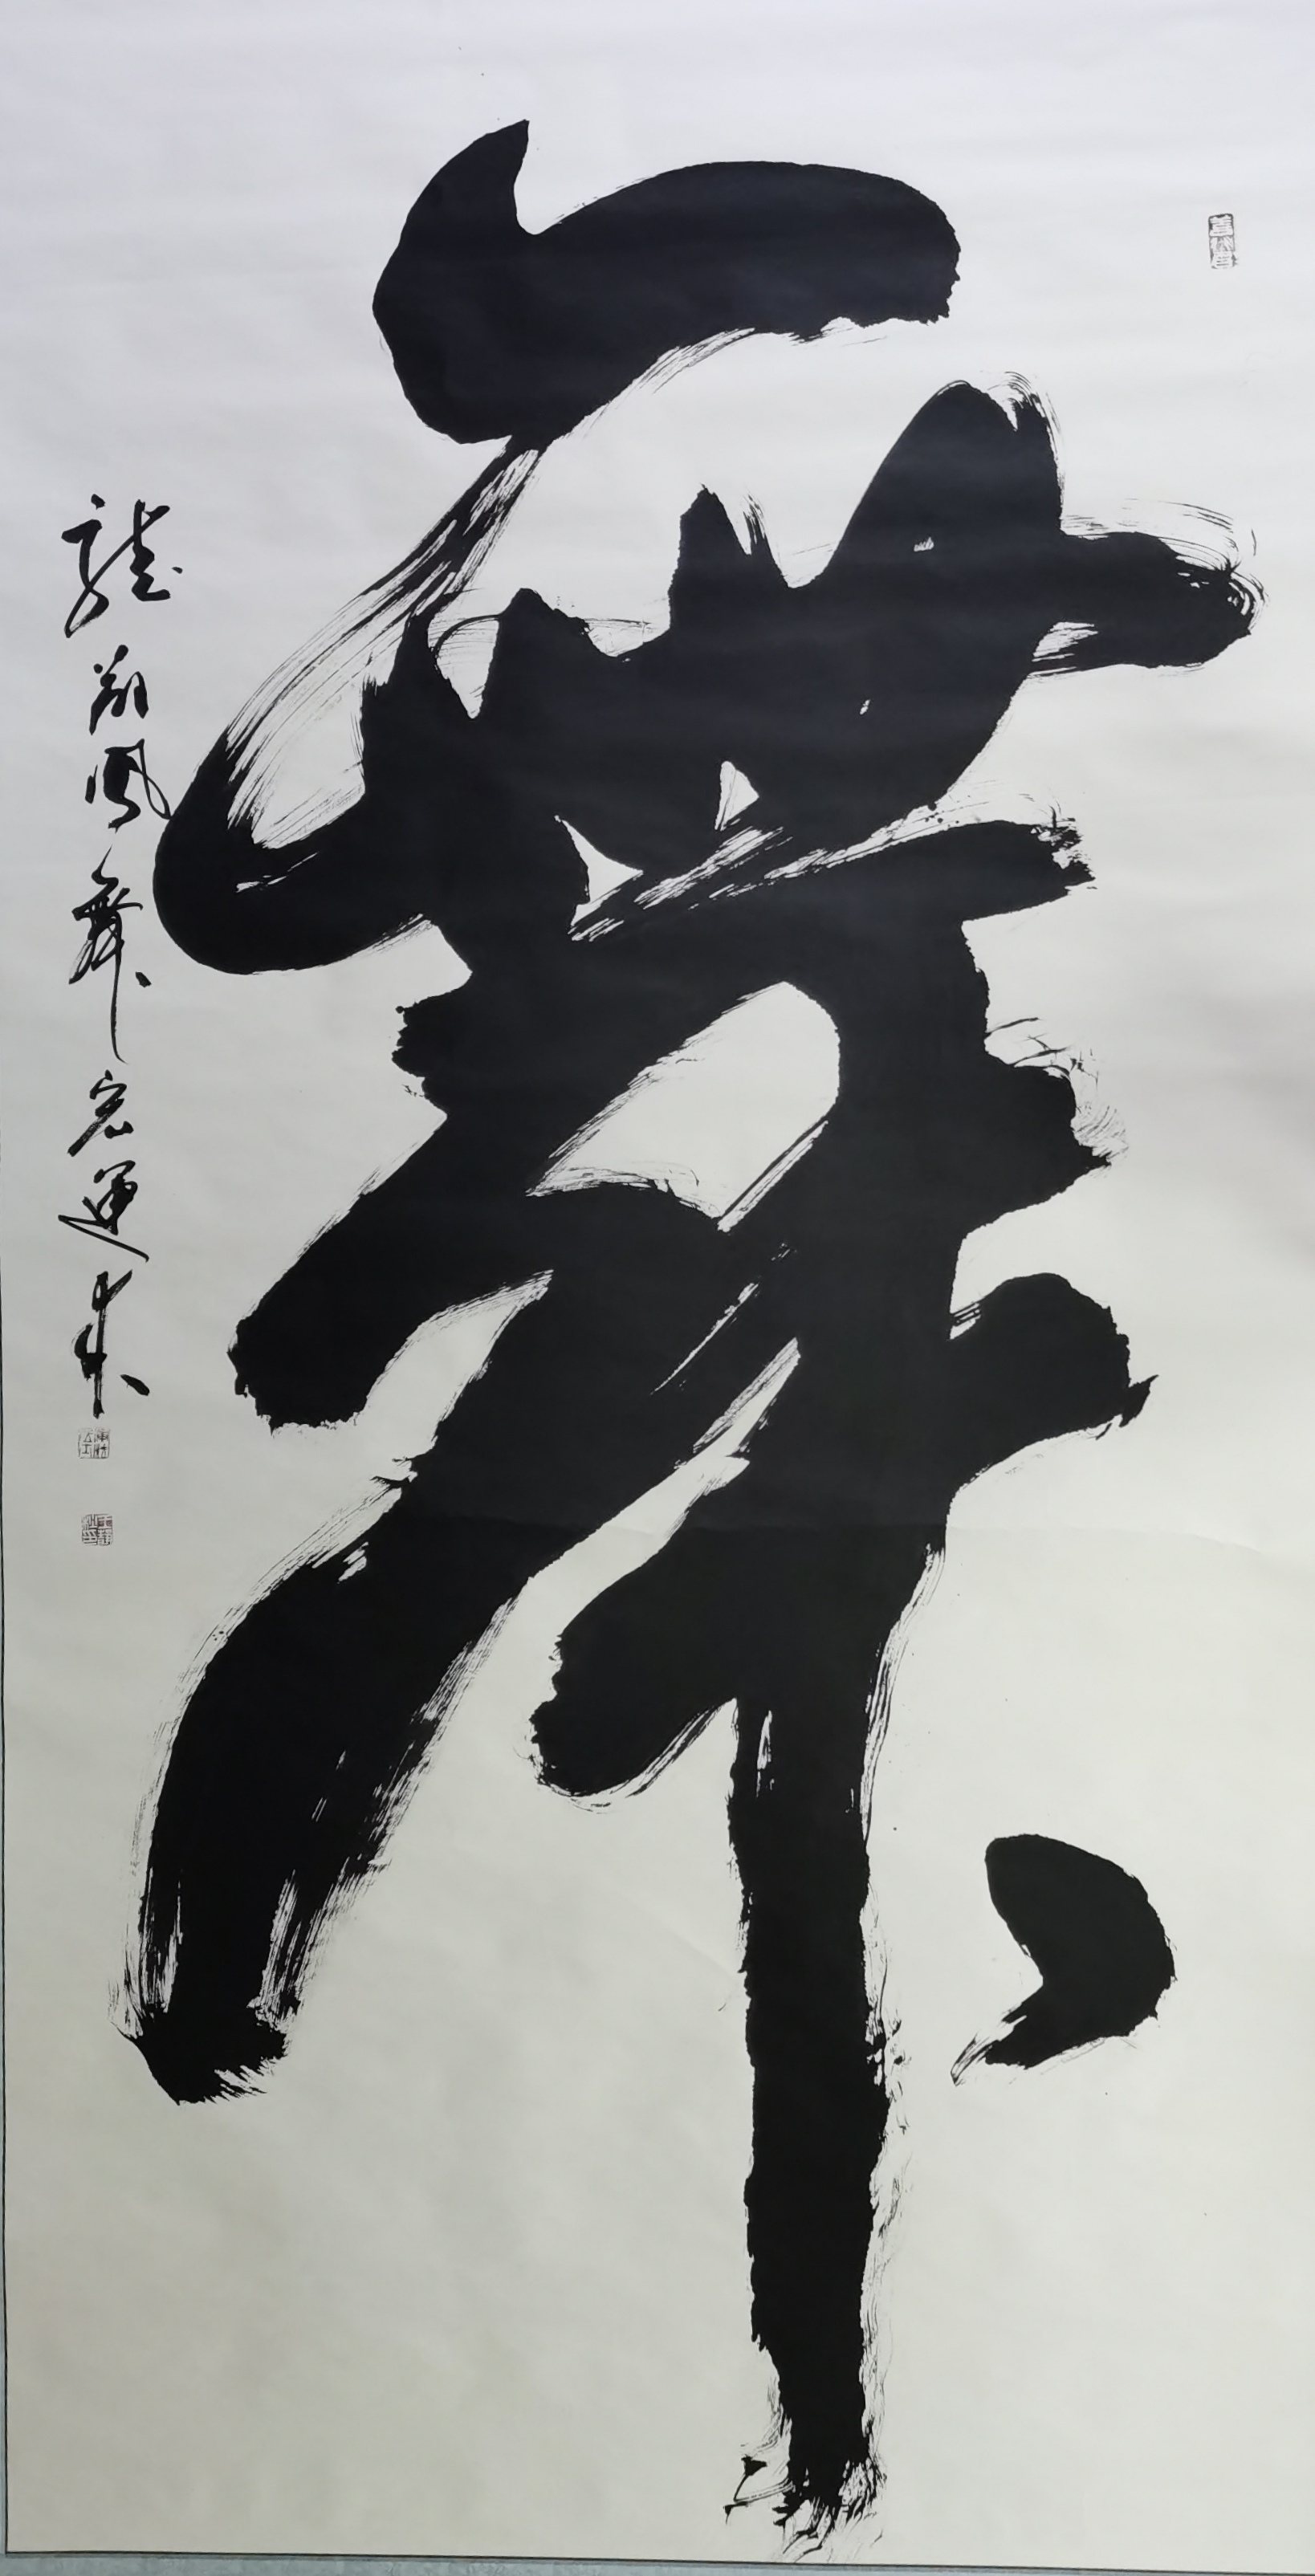 舞
龍翔鳳舞宏運來